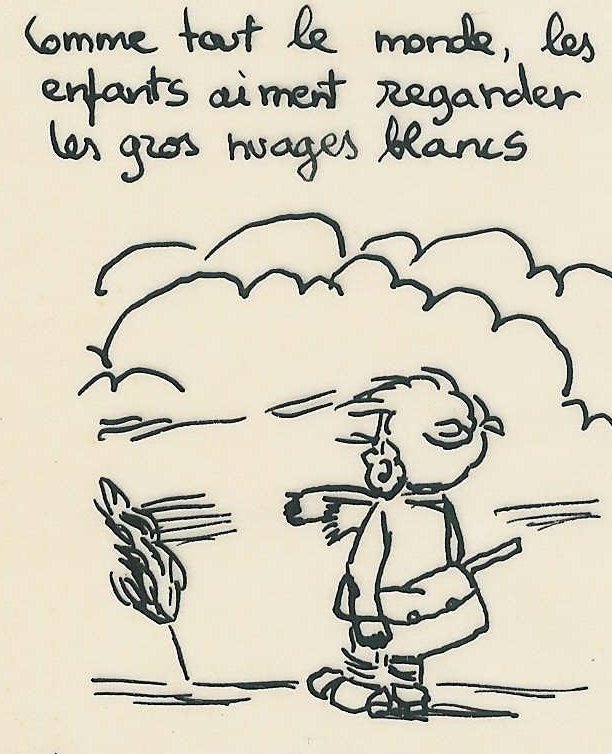 Comme tout le monde, les
enfants aiment regarder
les gros nuages blancs